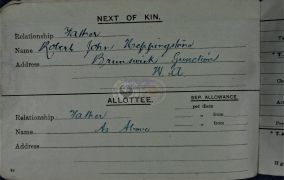 NEXT OF KIN.
Relationship Father
Name Robert John Heppingstone
Address Brunswick Junction
W. A.
ALLOTTEE.
SEP. ALLOWANCE.
per diem
Relationship Father
" from
Name As Above
" from
Address